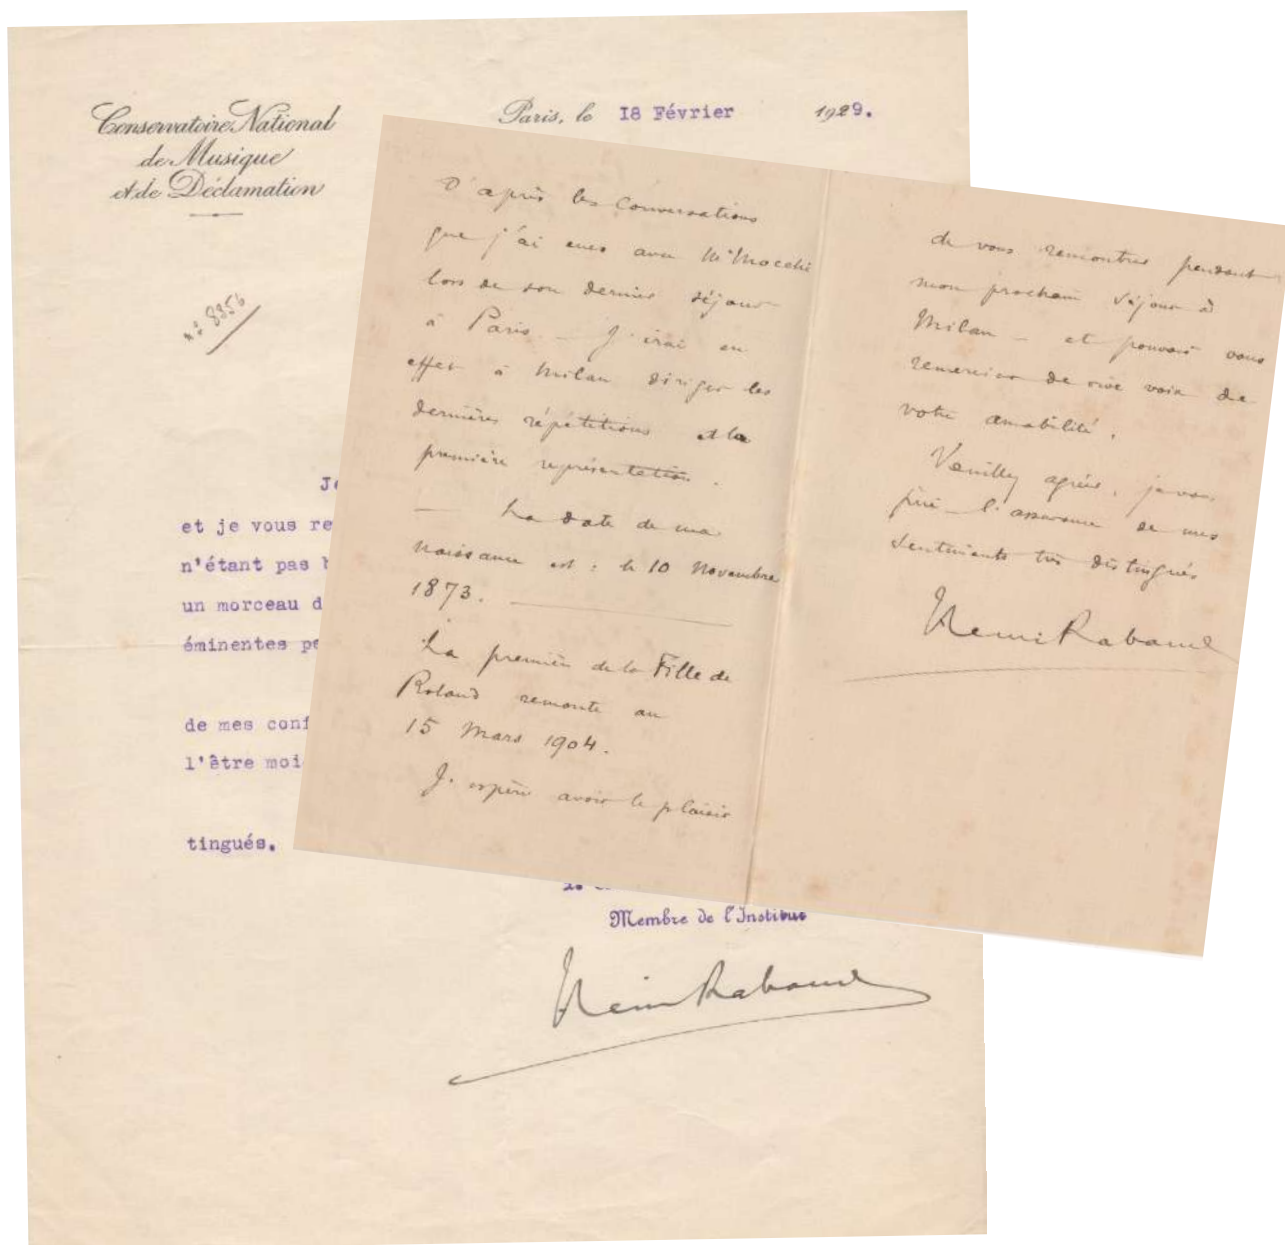 Conservatoire National
de Musique
et de Déclamation
Paris, le 18 Février 1929.
n° 8356
Je
et je vous re
n'étant pas
un morceau d
éminentes pe
de mes conf
l'être moi
tingués.
Membre de l'Institut
Henri Rabaud
D'après les Conversations
que j'ai eues avec Mr Mocchi
lors de son dernier séjour
à Paris _ J'irai en
effet à Milan diriger les
dernières répétitions et la
première représentation.
— La date de ma
naissance est : le 10 Novembre
1873. —
La première de la Fille de
Roland remonte au
15 Mars 1904.
J'espère avoir le plaisir
de vous rencontrer pendant
mon prochain séjour à
Milan — et pouvoir vous
remercier de vive voix de
votre amabilité.
Veuillez agréer, je vous
prie _ l'assurance de mes
sentiments très distingués
Henri Rabaud